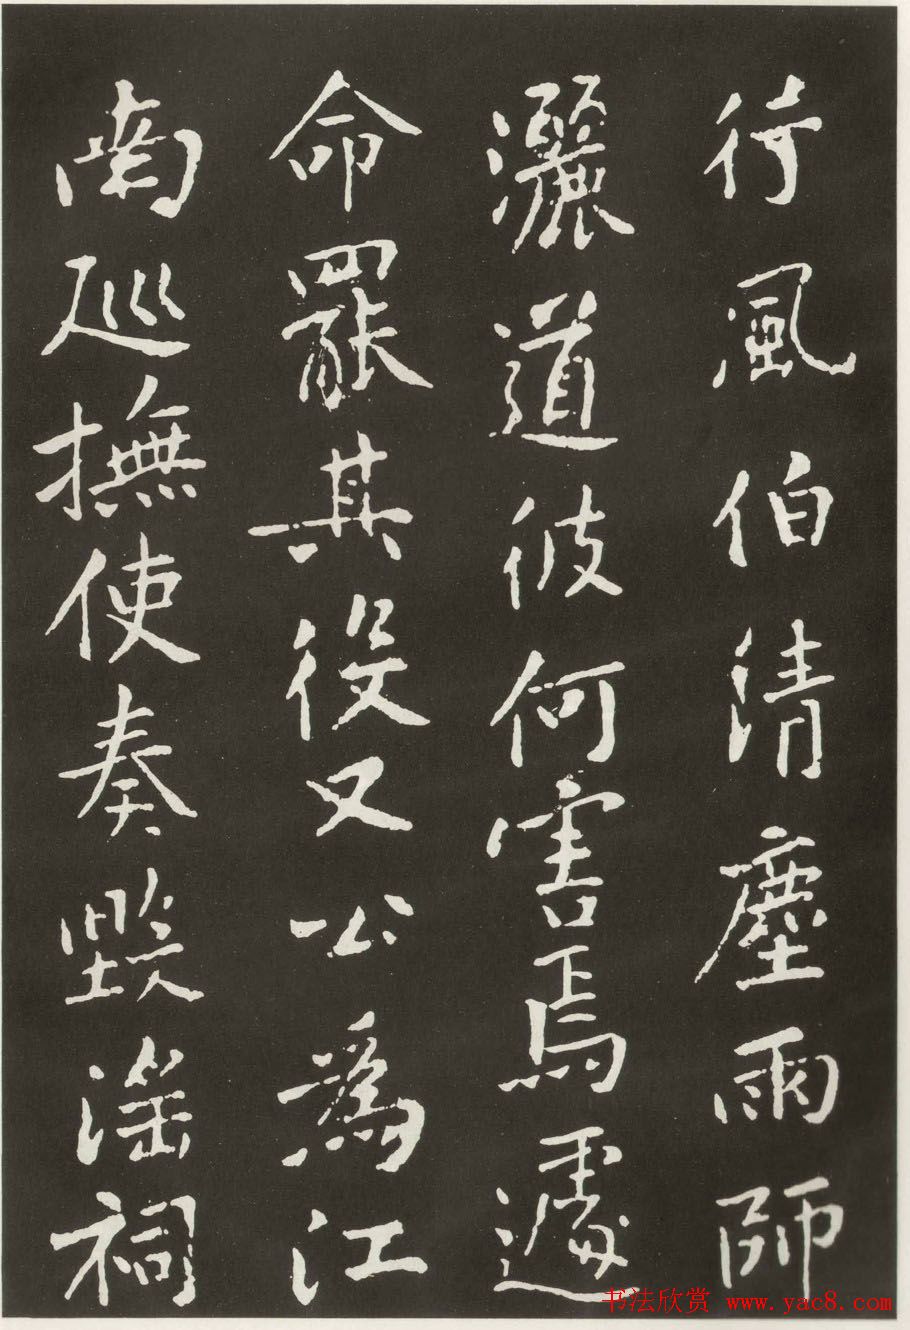 行風伯清塵雨師
灑道彼何害焉遽
命罷其役又公爲江
南巡撫使奏毀淫祠
书法欣赏 www.yac8.com